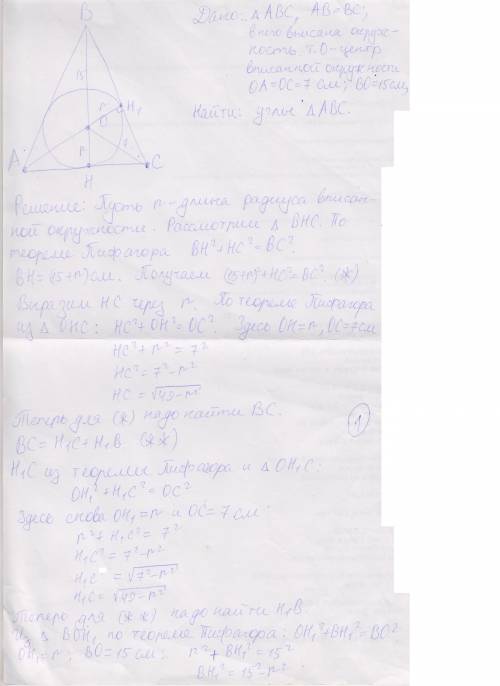 B
Дано: △ABC, AB=BC,
в него вписана окруж-
ность. т.О-центр
вписанной окружности
OA=OC=7 см; BO=15см,
Найти: углы △ABC.
15
r
H₁
O
r
7
A
C
H
Решение: Пусть r - длина радиуса вписан-
ной окружности. Рассмотрим △ BHC. По
теореме Пифагора BH²+HC²=BC².
BH=(15+r)см. Получаем (15+r)²+HC²=BC² (ж)
Выразим HC через r. По теореме Пифагора
из △ OHC: HC²+OH²=OC². Здесь OH=r, OC=7см
HC²+r²=7²
HC²=7²-r²
HC=√49-r²
Теперь для (ж) надо найти BC.
1
BC=H₁C+H₁B. (жж)
H₁C из теоремы Пифагора и △ OH₁C:
OH₁²+H₁C²=OC²
Здесь снова OH₁=r и OC=7см:
r²+H₁C²=7²
H₁C²=7²-r²
H₁C=√7²-r²
H₁C=√49-r²
Теперь для (жж) надо найти H₁B.
Из △ BOH₁ по теореме Пифагора: OH₁²+BH₁²=BO²
OH₁=r; BO=15см; r²+BH₁²=15²
BH₁²=15²-r²